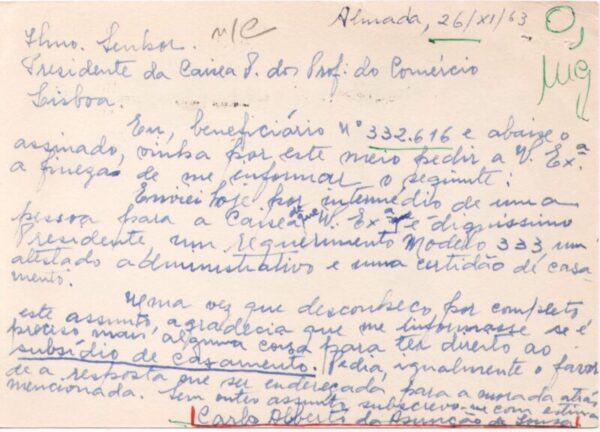 Almada, 26/XI/63
Ilmo. Senhor.
Presidente da Caixa P. dos Prof. do Comércio
Lisboa.
Eu, beneficiário Nº 332.616 e abaixo
assinado, vinha por este meio pedir a V. Exª
a fineza de me informar o seguinte:
Enviei hoje por intermédio de uma
pessoa para a Caixa de que V. Exª é digníssimo
Presidente, um requerimento Modelo 333 um
atestado administrativo e uma certidão de casa
mento.
Uma vez que desconheço, por completo
este assunto, agradecia que me informasse se é
preciso mais alguma coisa para ter direito ao
subsídio de casamento. Pedia, igualmente o favor
de a resposta me ser endereçada, para a morada atrás
mencionada. Sem outro assunto subscrevo-me com estima
Carlo Alberto da Assunção de Sousa